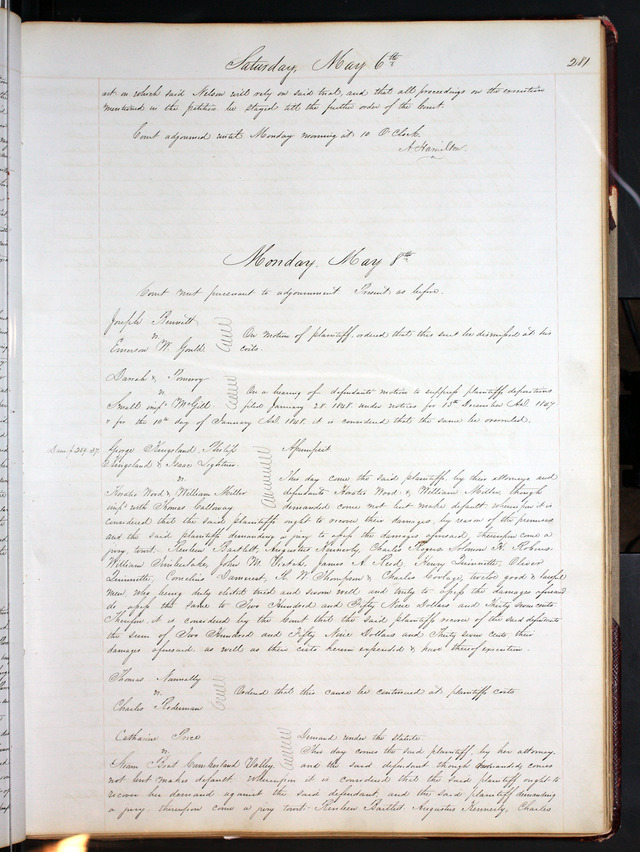 Saturday, May 6th
281
act on which said Nelson will rely on said trial, and that all proceedings on the execution
mentioned in the petition be stayed till the further order of the Court.
Court adjourned until Monday morning at 10 O'Clock.
A. Hamilton
Monday, May 8th
Court met pursuant to adjournment Present as before.
Joseph Bennett
vs.
Emerson W. Gould
On motion of plaintiff, ordered that this suit be dismissed at his
costs.
Darrah & Pomeroy
vs.
Small impd McGill
On a hearing of defendants motion to suppress plaintiffs depositions
filed January 28. 1848. under notices for 13th December A.D. 1847
& for the 10th day of January A.D. 1848. it is considered that the same be overruled.
Dam. $259.37
George Kingsland, Philip
Kingsland & Isaac Lightner
vs.
Horatio Wood & William Miller
impd with Thomas Calloway
Assumpsit
This day come the said plaintiffs, by their attorneys and
defendants Horatio Wood & William Miller, though
demanded come not but make default, wherefore it is
considered that the said plaintiffs ought to recover their damages, by reason of the premises
and the said plaintiffs demanding a jury to assess the damages aforesaid, thereupon come a
jury, to wit: Reuben Bartlett, Augustus Kennerly, Charles Rogers, Solomon H. Robins
William Timberlake, John M. James A. Reed, Henry Quinnette, Oliver
Quinnette, Cornelius R. W. Thompson & Charles twelve good & lawful
men, who being duly elected tried and sworn well and truly to assess the damages aforesaid
do assess the same to Two Hundred and Fifty Nine Dollars and thirty seven cents
Therefore it is considered by the Court that the said plaintiffs recover of the said defendants
the sum of Two Hundred and Fifty Nine Dollars and Thirty seven cents their
damages aforesaid, as well as their costs herein expended & have thereof execution.
Thomas Nunnally
vs.
Charles Rederman
Ordered that this cause be continued at plaintiffs costs
Catharine Price
vs.
Steam Boat Cumberland Valley
Demand under the statute.
This day comes the said plaintiff, by her attorney,
and the said defendant though demanded, comes
not but makes default. Wherefore it is considered that the said plaintiff ought to
recover her demand against the said defendant, and the said plaintiff demanding
a jury, thereupon come a jury to wit: Reuben Bartlett Augustus Kennerly, Charles